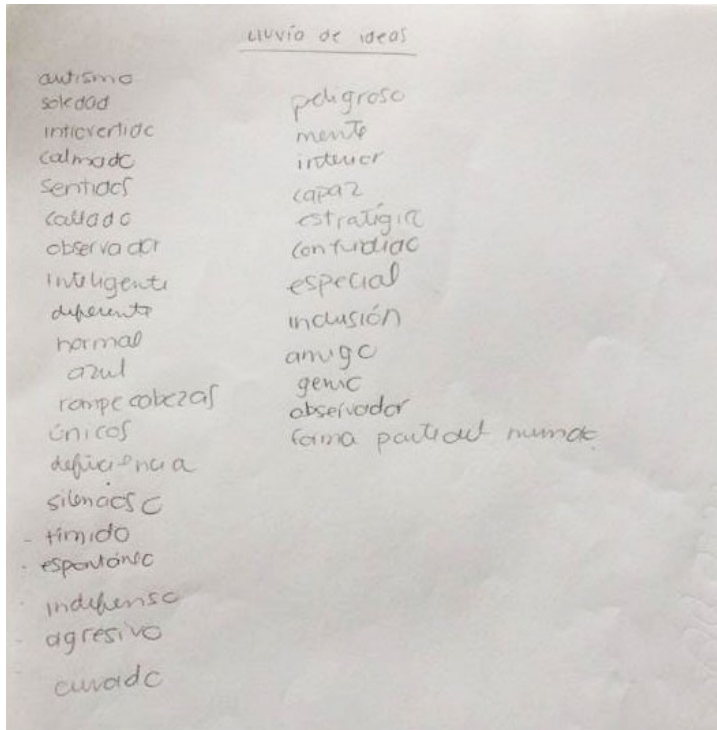 lluvia de ideas
autismo
soledad
introvertido
calmado
sentidos
callado
observador
inteligente
diferente
normal
azul
rompecabezas
únicos
deficiencia
silencioso
- tímido
- espontáneo
indefenso
- agresivo
curado
peligroso
mente
interior
capaz
estratégia
confundido
especial
inclusión
amigo
genio
observador
forma parte del mundo